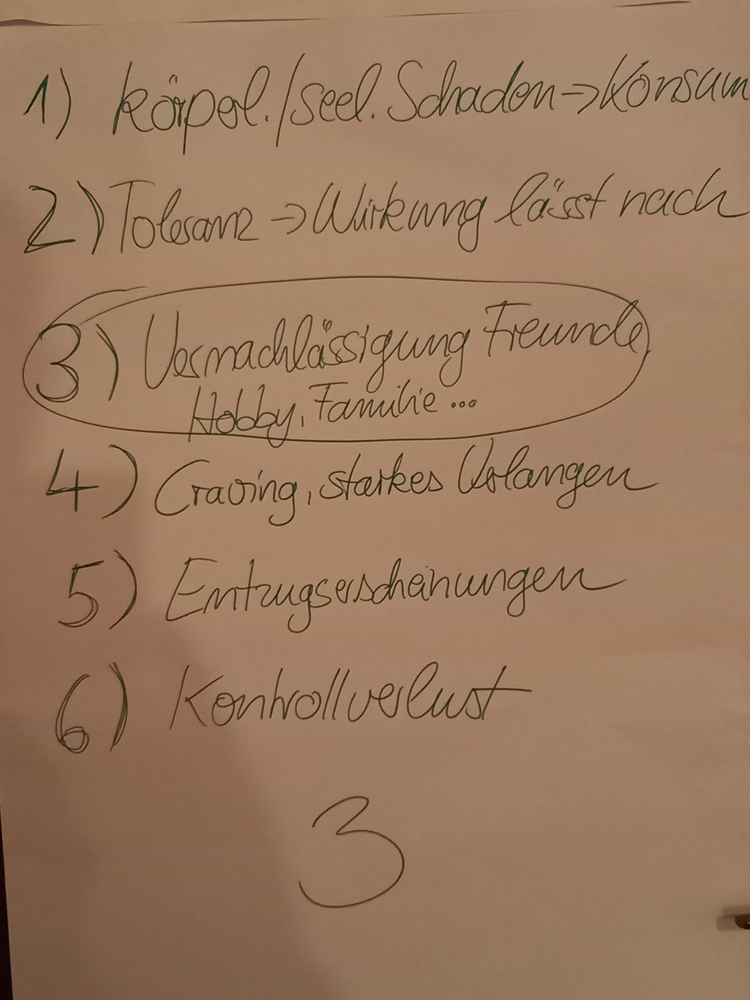 1) körperl./seel. Schaden → Konsum
2) Toleranz → Wirkung lässt nach
3) Vernachlässigung Freunde
Hobby, Familie ...
4) Craving, starkes Verlangen
5) Entzugserscheinungen
6) Kontrollverlust
3